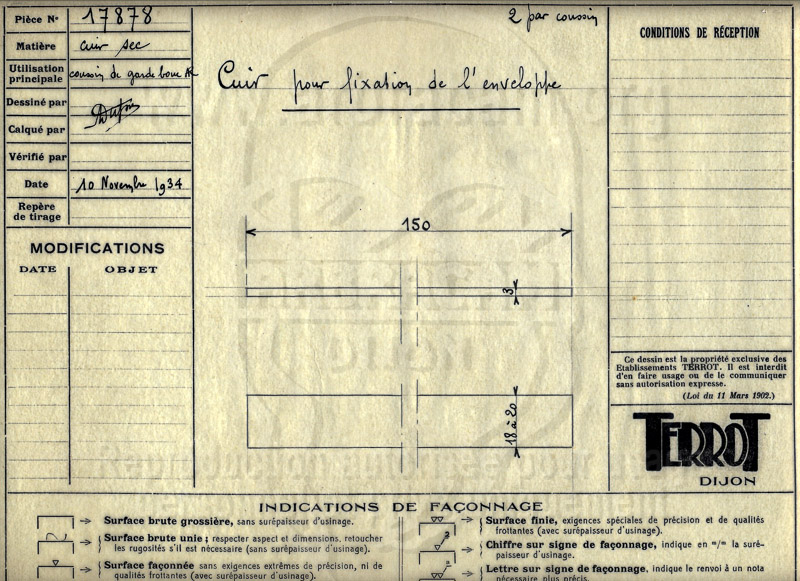 Pièce No 17878
Matière cuir sec
Utilisation principale coussin de garde boue AR
Dessiné par
Calqué par
Vérifié par
Date 10 Novembre 1934
Repère de tirage
MODIFICATIONS
DATE OBJET
2 par coussin
Cuir pour fixation de l'enveloppe
150
3
18 à 20
CONDITIONS DE RÉCEPTION
Ce dessin est la propriété exclusive des
Etablissements TERROT. Il est interdit
d'en faire usage ou de le communiquer
sans autorisation expresse.
(Loi du 11 Mars 1902.)
TERROT
DIJON
INDICATIONS DE FAÇONNAGE
Surface brute grossière, sans surépaisseur d'usinage.
Surface brute unie ; respecter aspect et dimensions, retoucher
les rugosités s'il est nécessaire (sans surépaisseur d'usinage).
Surface façonnée sans exigences extrêmes de précision, ni de
qualités frottantes (avec surépaisseur d'usinage).
Surface finie, exigences spéciales de précision et de qualités
frottantes (avec surépaisseur d'usinage).
Chiffre sur signe de façonnage, indique en m/m la suré-
paisseur d'usinage.
Lettre sur signe de façonnage, indique le renvoi à un nota
nécessaire plus précis.